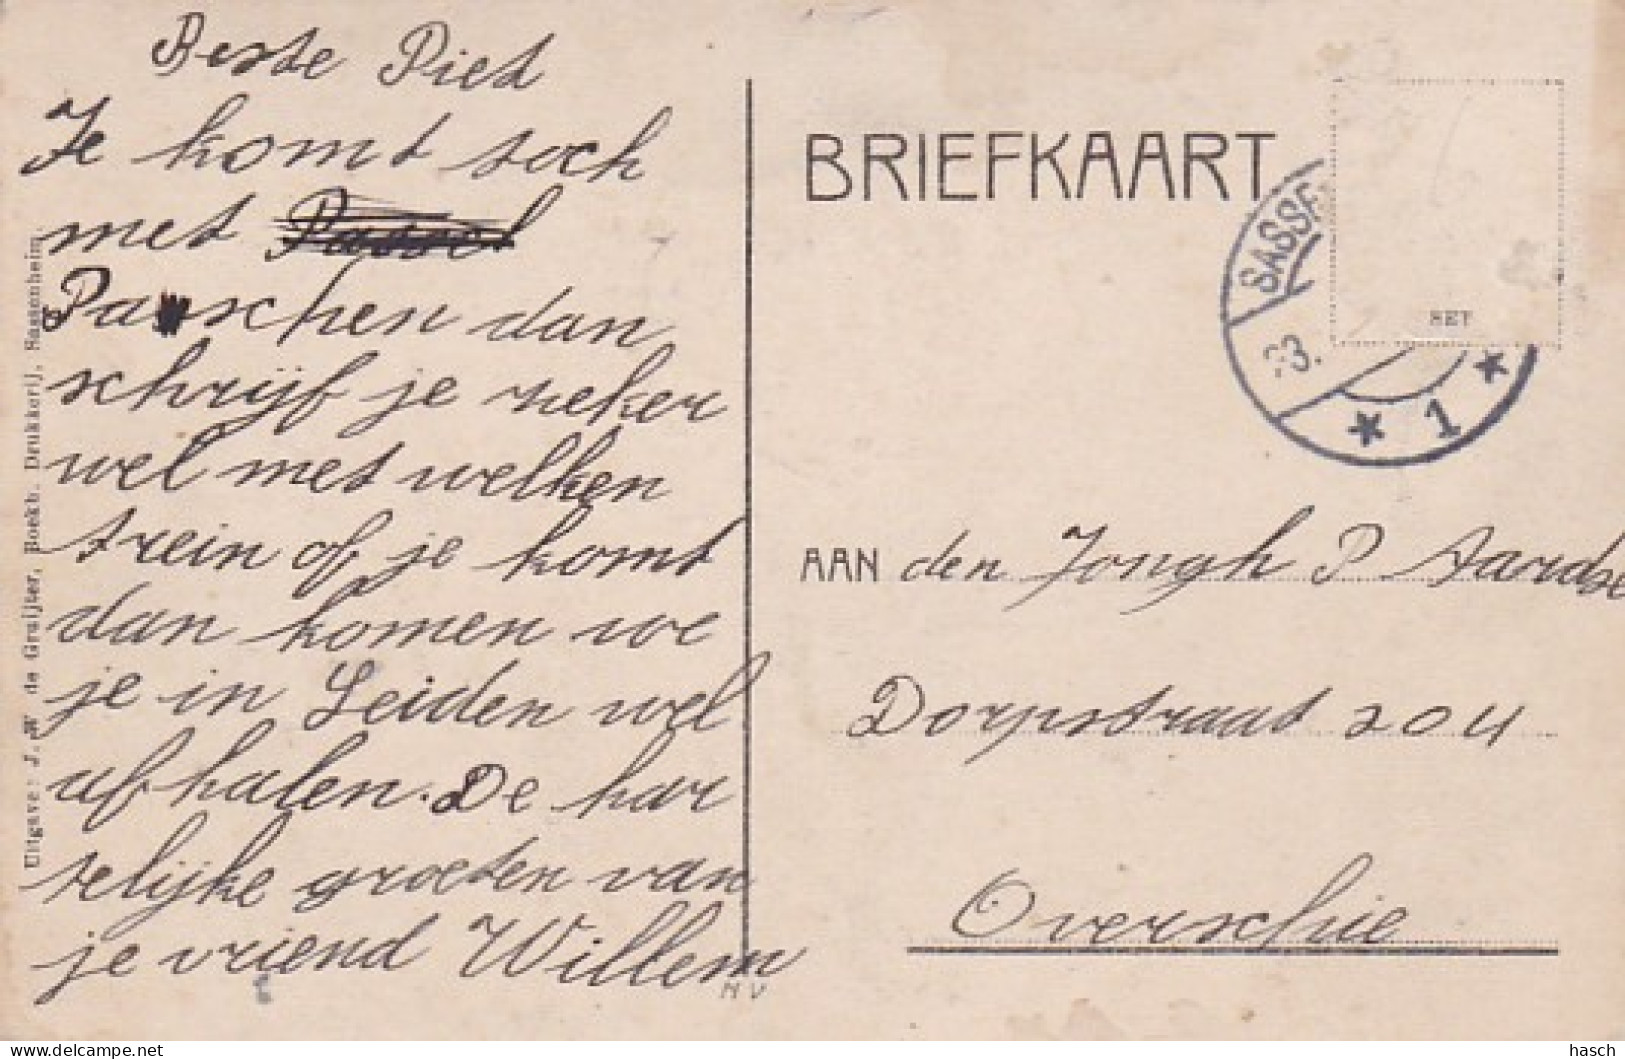 Beste Piet
Je komt toch
met
Paschen dan
schrijf je zeker
wel met welken
trein of je komt
dan komen we
je in Leiden wel
afhalen. De har
telijke groeten van
je vriend Willem
NV
Uitgave: J. W de Gruijter, Boekh. Drukkerij, Sassenheim
BRIEFKAART
SASSE
23.
1
SET
AAN den Jongh P Aardse
Dorpstraat 204
Overschie
hasch